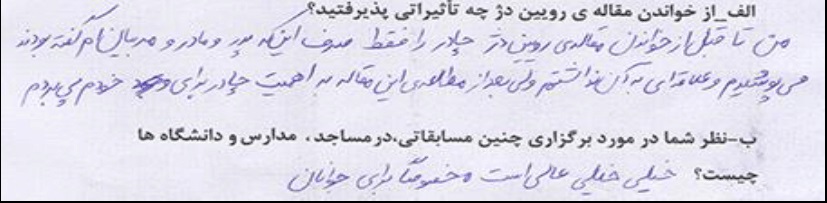 الف_از خواندن مقاله ی رویین دژ چه تأثیراتی پذیرفتید؟
من تا قبل از خواندن مقاله‌ی رویین دژ چادر را فقط صرف این که پدر و مادر و مربیان ام گفته بودند
می پوشیدم و علاقه ای به آن نداشتم ولی بعد از مطالعه ی این مقاله به اهمیت چادر برای خودم پی بردم
ب-نظر شما در مورد برگزاری چنین مسابقاتی،در مساجد، مدارس و دانشگاه ها
چیست؟ خیلی خیلی عالی است خصوصاً برای جوانان